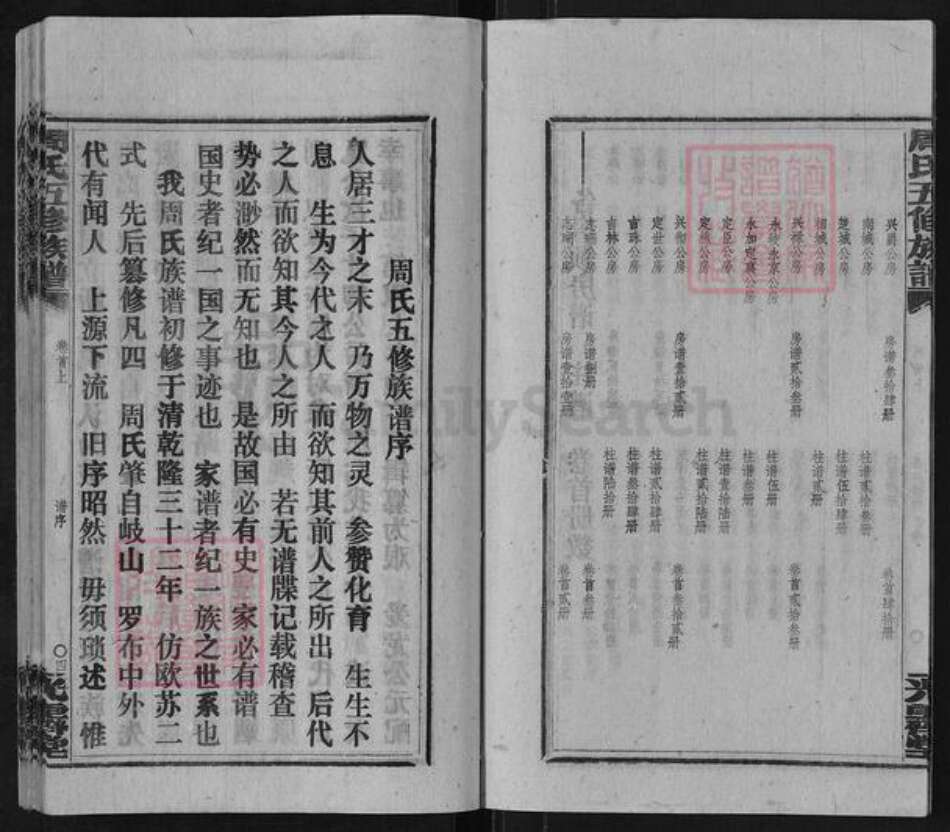 周氏五修族谱
兴爵公房 房谱叁拾肆册 卷首肆拾册
楚城公房 柱谱伍拾肆册
柱谱贰册
兴禄公房 房谱贰拾叁册 卷首贰拾叁册
永加定寅公房 柱谱叁册
定臣公房 柱谱壹拾陆册
房谱壹拾贰册 卷首壹拾贰册
定世公房 柱谱贰拾册
吉珠公房 柱谱叁拾肆册
吉林公房 柱谱陆拾册
志瑞公房 房谱捌册 卷首
房谱壹拾壹册 卷首贰册
周氏五修族谱序
人居三才之末 乃万物之灵 参赞化育 生生不
息 生为今代之人 而欲知其前人之所出 后代
之人而欲知其今人之所由 若无谱牒记载稽查
势必渺然而无知也 是故国必有史 家必有谱
国史者纪一国之事迹也 家谱者纪一族之世系也
我周氏族谱初修于清乾隆三十二年 仿欧苏二
式 先后纂修凡四 周氏肇自岐山 罗布中外
代有闻人 上源下流 旧序昭然 毋须琐述 惟
周氏五修族谱
卷首上
谱序